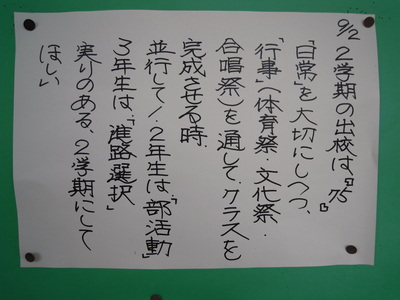 9/2
2学期の出校は、『75』
「日常」を大切にしつつ、
「行事」(体育祭・文化祭・
合唱祭)を通して、クラスを
完成させる時.
並行して1.2年生は、「部活動」
3年生は、「進路選択」
実りのある、2学期にして
ほしい